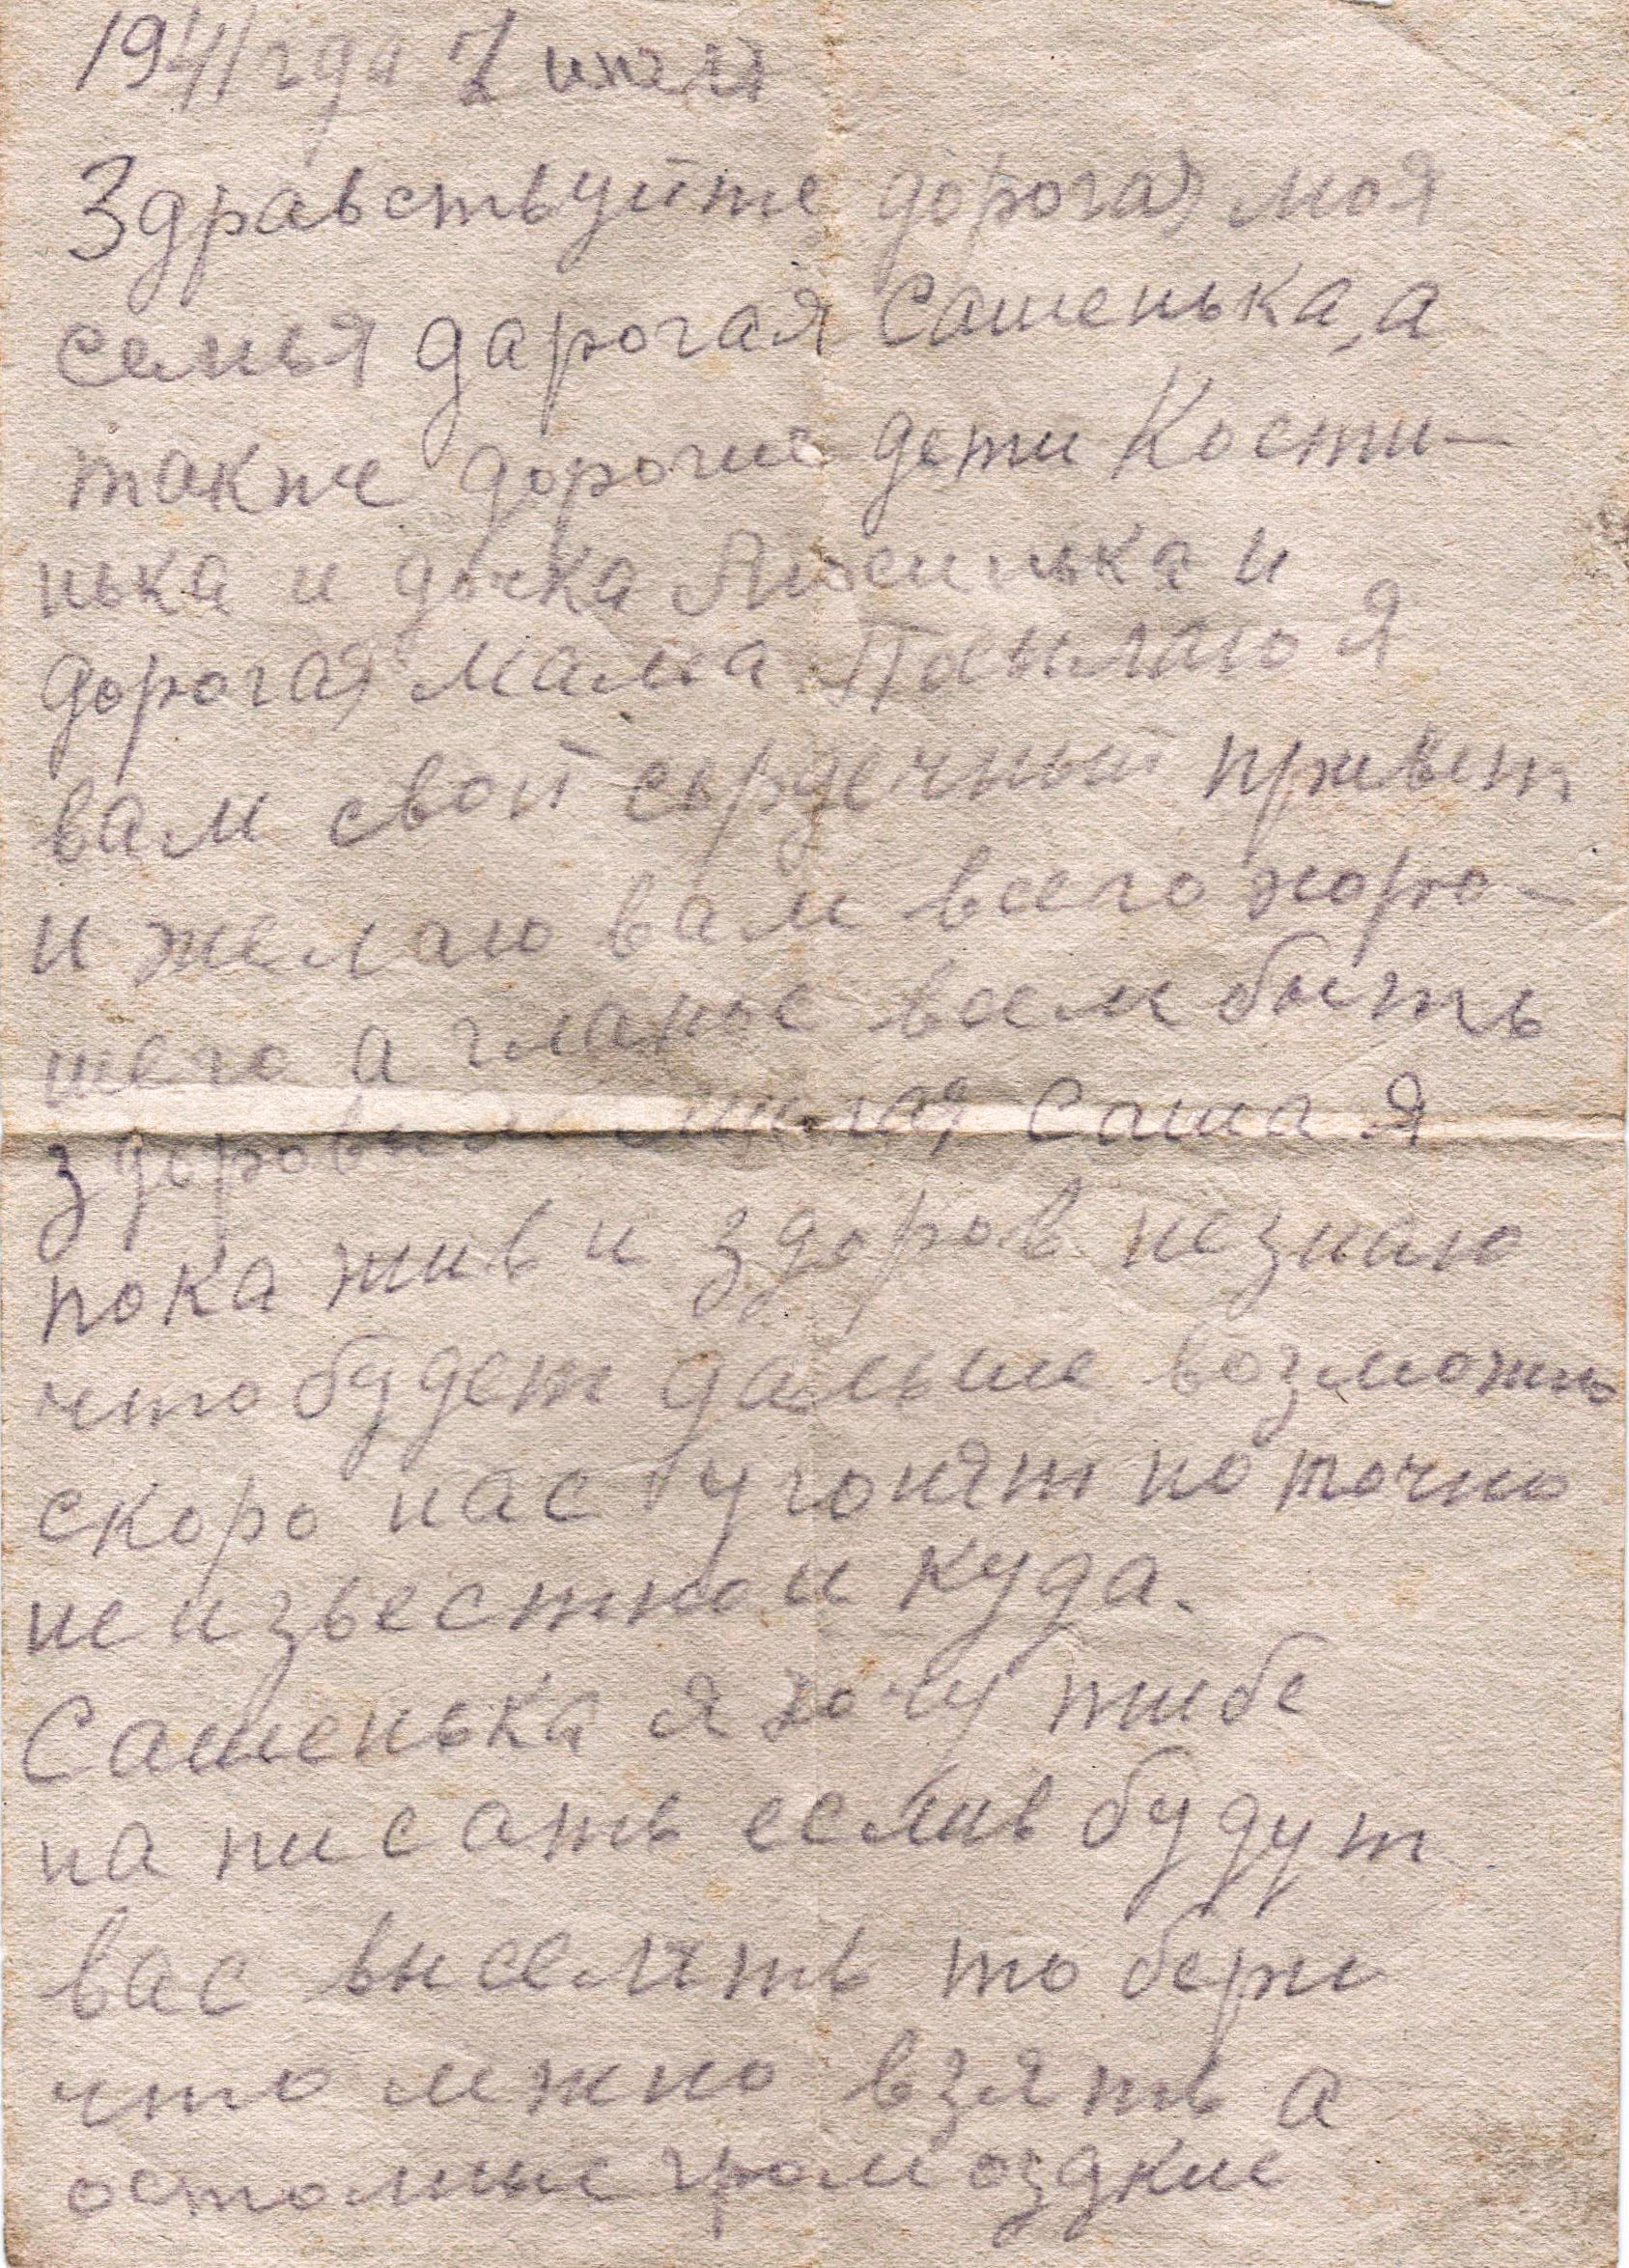 1941 года 7 июля
Здравствуйте дорогая моя
семья дарогая Сашенька, а
также дорогие дети Кости-
нька и дочка Люсинька и
дорогая мама Посылаю я
вам свой сердечный привет
и желаю вам всего хоро-
шего а гланое всем быть
здоровыми милая Саша я
пока жив и здоров незнаю
что будет дальше возможно
скоро нас угонят но точно
не известно и куда.
Сашенька я хочу тибе
написать еслив будут
вас выселять то бери
что мжно взять а
остольные громоздкие